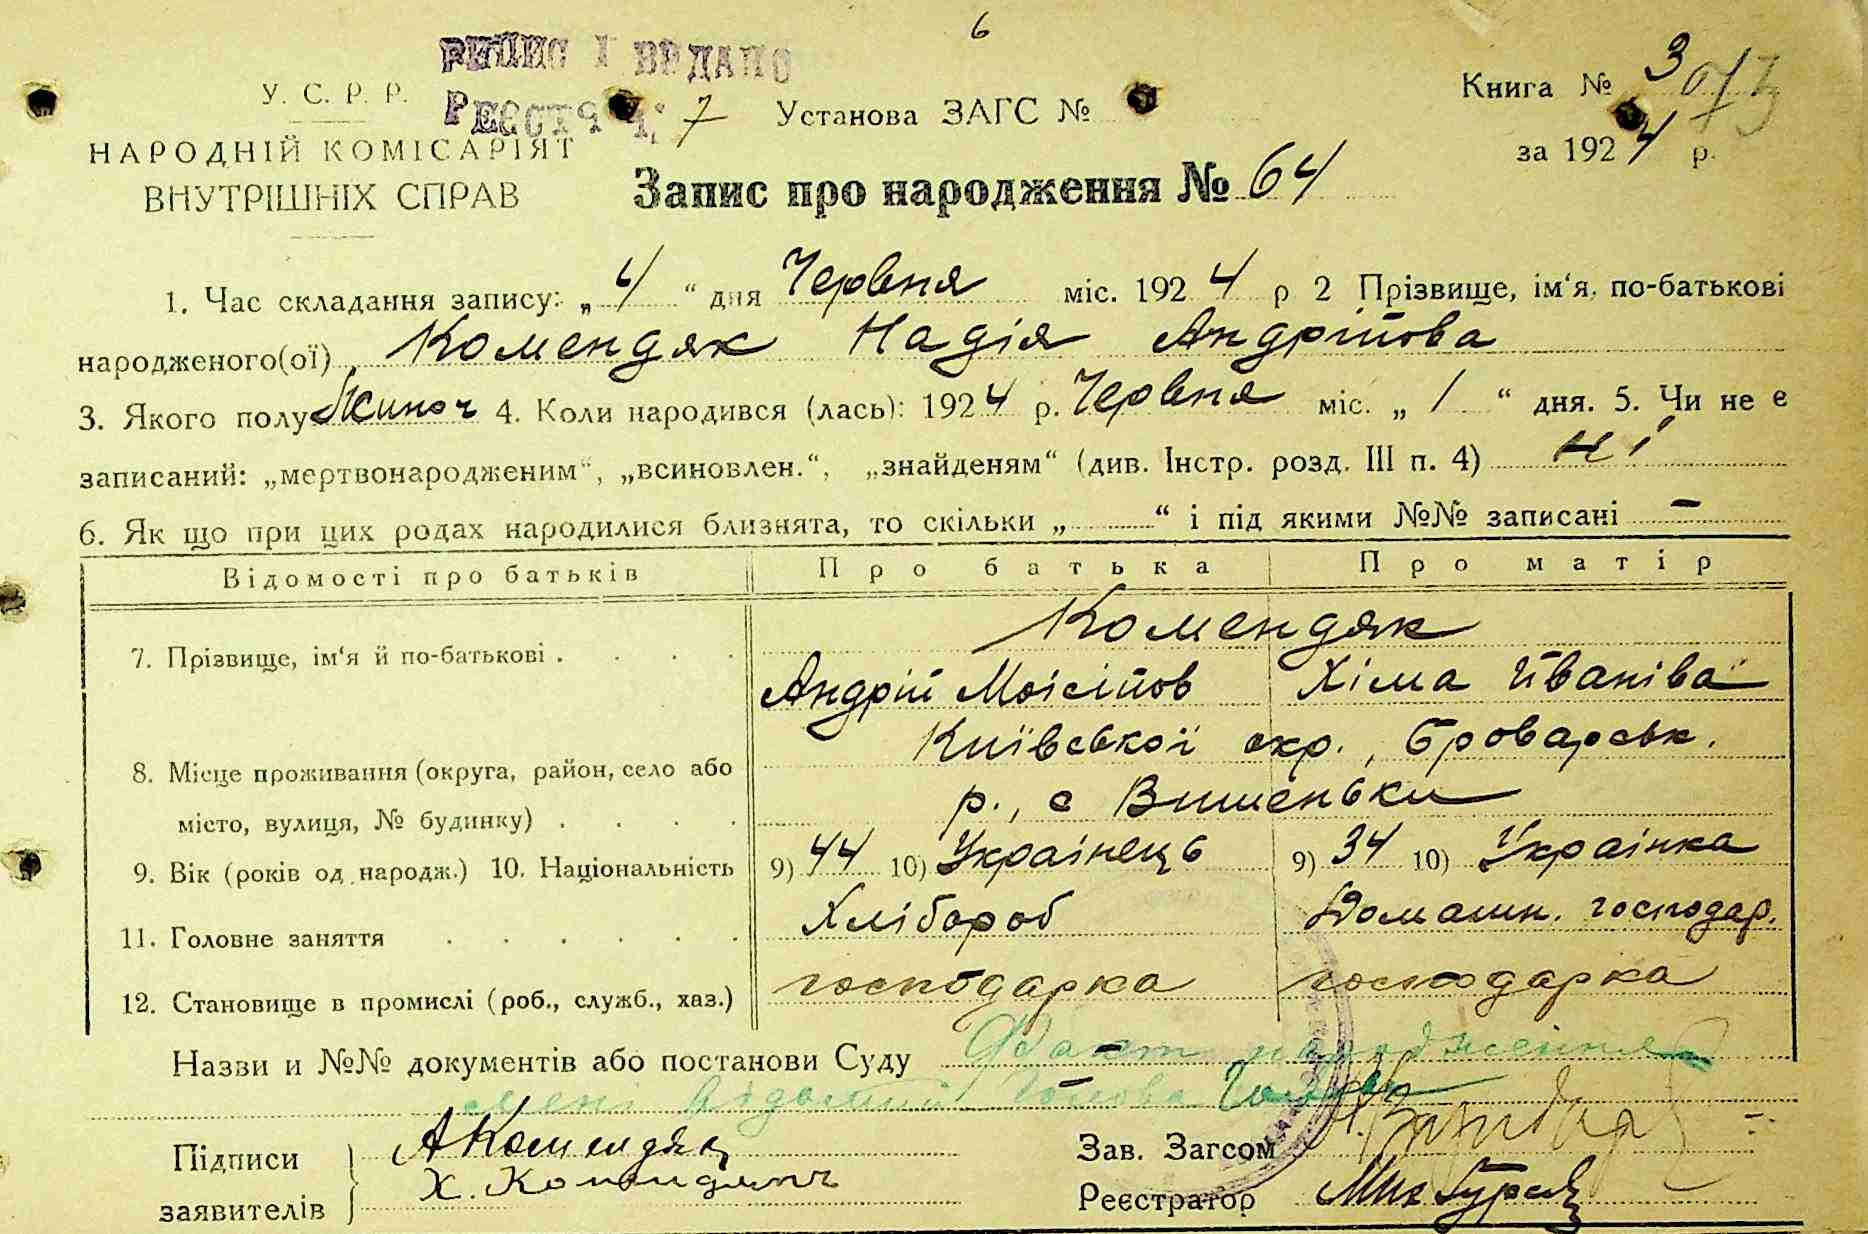 6
У. С. Р. Р.
НАРОДНІЙ КОМІСАРІЯТ
ВНУТРІШНІХ СПРАВ
7 Установа ЗАГС №
Книга № 3
за 1924 р.
Запис про народження № 64
1. Час складання запису: „ 4 “ дня Червня міс. 1924 р 2 Прізвище, ім‘я, по-батькові
народженого(ої) Комендяк Надія Андріїова
3. Якого полу Жиноч 4. Коли народився (лась): 1924 р. Червня міс. „ 1 “ дня. 5. Чи не є
записаний: „мертвонародженим“, „всиновлен.“, „знайденям“ (див. Інстр. розд. III п. 4) Ні
6. Як що при цих родах народилися близнята, то скільки „ “ і під якими №№ записані –
Відомості про батьків Про батька Про матір
7. Прізвище, ім‘я й по-батькові . . . . Комендяк
Андрій Моісіїов Хіма Иванівa
8. Місце проживання (округа, район, село або Київської окр., Броварськ.
місто, вулиця, № будинку) . . . . р., с Вишеньки
9. Вік (років од народж.) 10. Національність 9) 44 10) Украінець 9) 34 10) Украінка
11. Головне заняття . . . . . . Хлібороб Домашн. господар.
12. Становище в промислі (роб., служб., хаз.) господарка господарка
Назви и №№ документів або постанови Суду Факт народження
мені відомий Голова
Підписи А Комендяк Зав. Загсом
заявителів Х. Комендяк Реєстратор